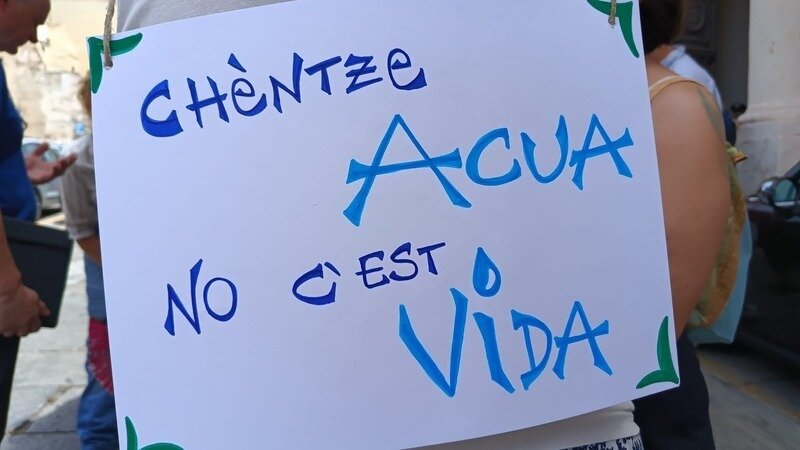 CHÈNTZE
ACUA
NO C'EST
ViDA